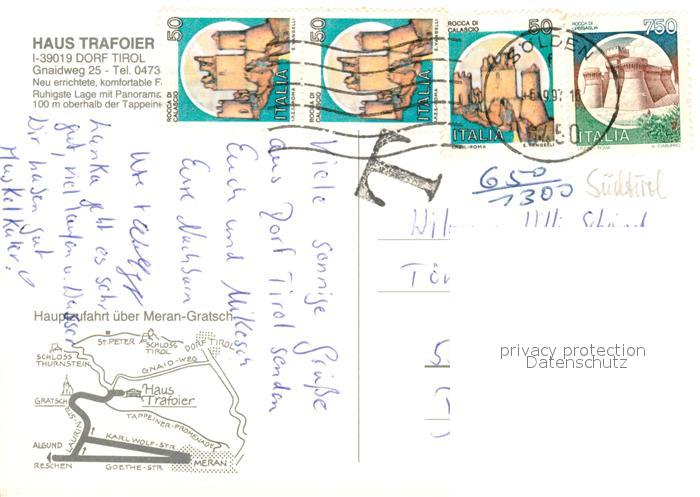 HAUS TRAFOIER
I-39019 DORF TIROL
Gnaidweg 25 - Tel. 0473
Neu errichtete, komfortable F
Ruhigste Lage mit Panorama
100 m oberhalb der Tappeine
50
ROCCA DI CALASCIO
ITALIA
50
ROCCA DI CALASCIO
ITALIA
ROCCA DI
CALASCIO
50
ITALIA
ROCCA DI
URBISAGLIA
750
ITALIA
SÖLDEN
6450
T
650
1300
Südtirol
Viele sonnige Grüße
aus Dorf Tirol senden
Euch und Mikesch
Eure Nachbarn
Ute +
Lanka geht es sehr
gut, viel laufen u.
Wir haben gut
Muskelkater!
Hauptzufahrt über Meran-Gratsch
ST. PETER
SCHLOSS
TIROL
DORF TIROL
SCHLOSS
THURNSTEIN
GNAID-WEG
GRATSCH
Haus
Trafoier
LAURIN-STR
TAPPEINER-PROMENADE
ALGUND
KARL WOLF-STR
RESCHEN
GOETHE-STR
MERAN
privacy protection
Datenschutz